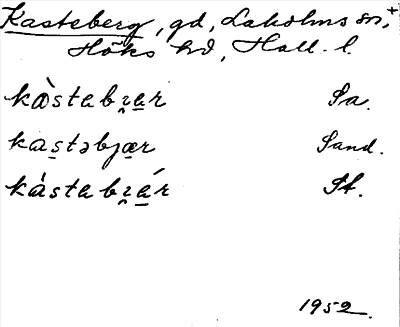 Kasteberg, gd, Laholms sn, +
Höks hd, Hall. l.
kàstabi̯æ̱r Sa.
kas̱təbjæ̱r Sand.
kástabi̯ǽ̱r St.
1952.